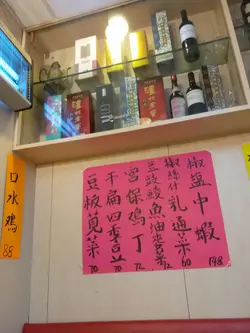 椒鹽中蝦 148
椒絲什乳通菜 60
豆豉鯪魚油麥菜 72
宮保鷄丁 72
干扁四季豆 70
豆板莧菜 70
口水鷄 88